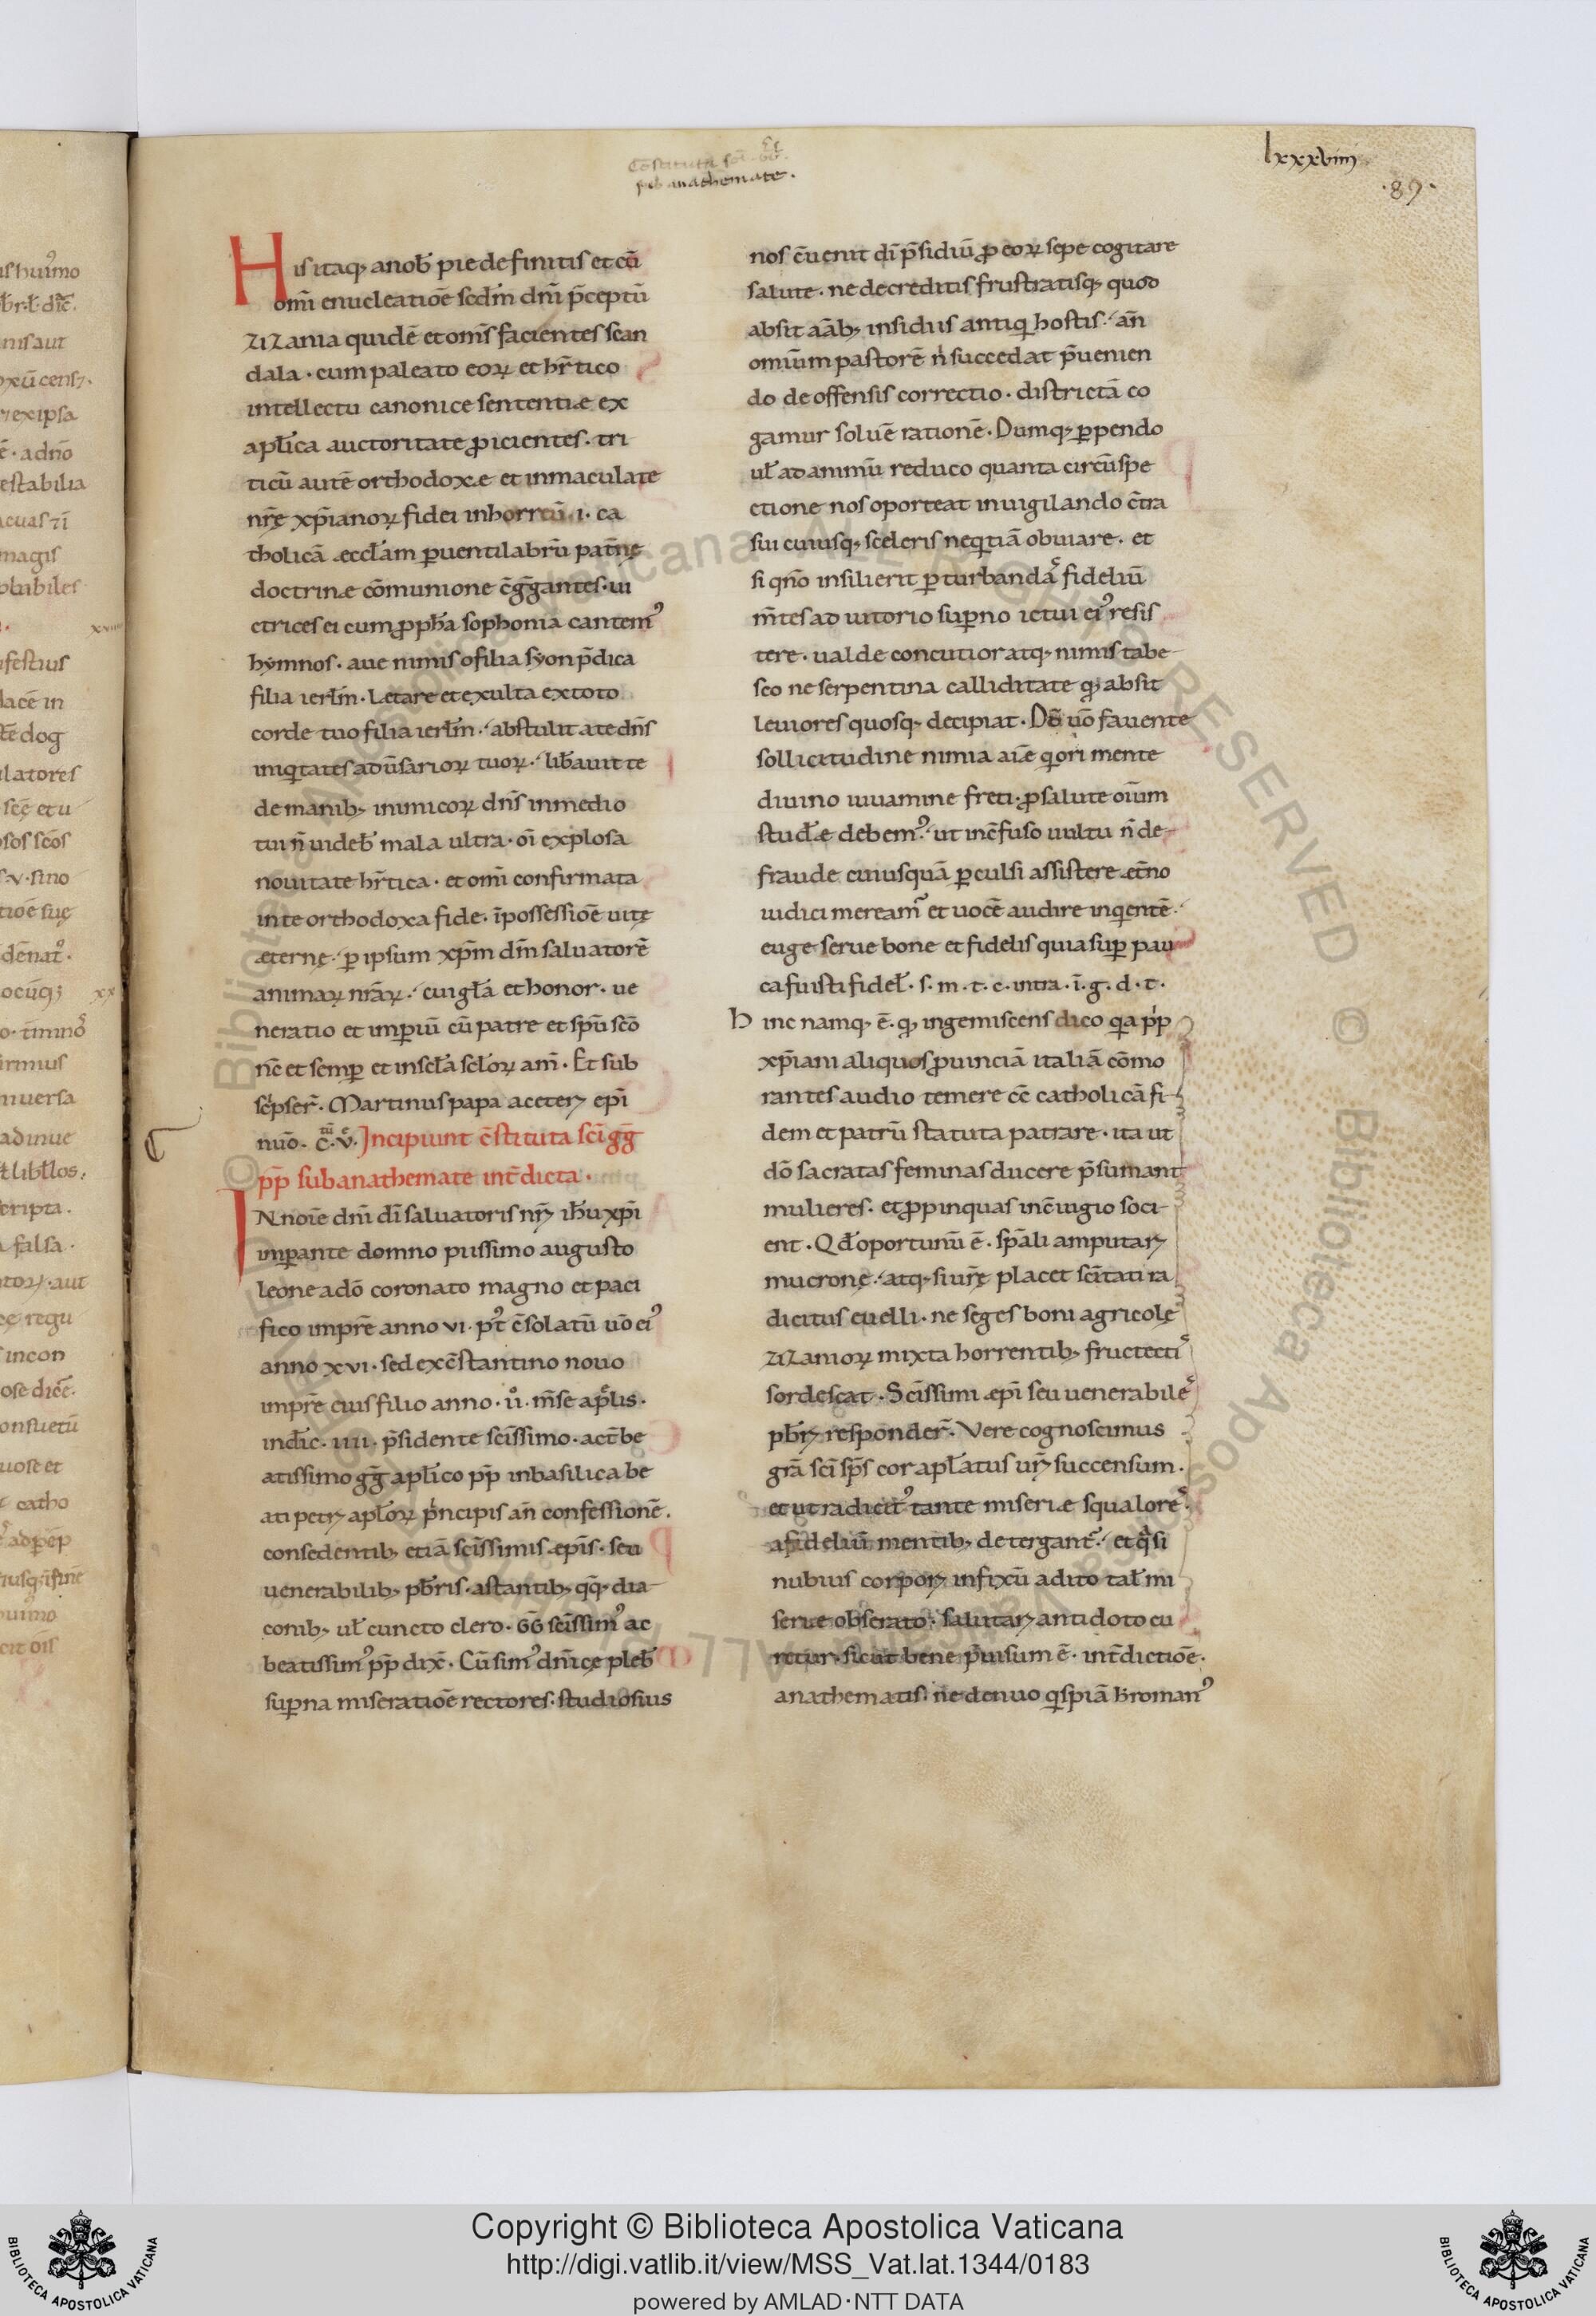 sub anathemate.
lxxxviiii
.89.
His itaq; a nob̄ pie definitis et cū
om̄i enucleatiōe scd̄m dn̄i p̄ceptū
zizania quidē et om̄s facientes scan
dala · cum paleato eoꝝ et hr̄tico
intellectu canonice sententiae ex
apl̄ica auctoritate ꝓicientes · tri
ticū autē orthodoxae et inmaculate
nr̄ę xp̄ianoꝝ fidei in horreū · i · ca
tholicā aeccl̄am ꝑ uentilabrū patnę
doctrinae cōmunione c̄ḡḡantes · ui
ctrices ei cum ꝓpħa sophonia cantem᾽
hymnos · aue nimis o filia syon p̄dica
filia ierl̄m · Letare et exulta ex toto
corde tuo filia ierl̄m · abstulit a te dn̄s
iniq̇tates adūsarioꝝ tuoꝝ · lib̄auit te
de manib; inimicoꝝ dn̄s in medio
tui n̄ uideb̄ mala ultra · oī explosa
nouitate hr̄tica · et om̄i confirmata
in te orthodoxa fide · ī possessiōe uitę
aeternę · ꝑ ipsum xp̄m dn̄m saluatorē
animaꝝ nr̄aꝝ · cui gl̄a et honor · ue
neratio et imꝑiū cū patre et sp̄u sc̄o
nc̄ et semꝑ et in scl̄a scl̄oꝝ am̄ · Et sub
sc̓pser̄ · Martinus papa a ceteꝝ ep̄i
nuō · c̄ · v̄ · Incipiunt c̄stituta sc̄i ḡḡ
pp̄ sub anathemate int̄dicta ·
IN noīe dn̄i dī saluatoris nr̄ı ihu̅ xp̄i
imꝑante domno piissimo augusto
leone a dō coronato magno et paci
fico impr̄e anno vi · pt̄ c̄solatū uō ei᾽
anno xvi · sed ex c̄stantino nouo
impr̄e eius filio anno · ii · m̄se ap̓lis ·
indic̄ · iiii · p̄sidente sc̄issimo · ac t̄ be
atissimo ḡḡ apl̄ico pp̄ in basilica be
ati petrı apl̄oꝝ p̓ncipis an̄ confessionē ·
consedentib; etiā sc̄issimis aep̄is · seu
uenerabilib; pb̄ris · astantib; qq̄; dia
conib; ul̄ cuncto clero · GG̅ sc̄issim᾽ ac
beatissim᾽ pp̄ dix̄ · Cū sim᾽ dn̄icę pleb̄
suꝑna miseratiōe rectores · studiosius
nos c̄uenit dī p̄sidiū ꝓ eoꝝ sepe cogitare
salute · ne decreditis frustratisq; quod
absit a āb; insidiis antiq̇ hostis · an̄
omiūm pastorē n̓ succedat p̄uenien
do de offensis correctio · districtā co
gamur soluē rationē · Dumq; ꝑpendo
ul̄ ad animū reduco quanta circūspe
ctione nos oporteat inuigilando c̄tra
sui cuiusq; sceleris neq̇tiā obuiare · et
si qn̄o insilierit ꝑturbandas fideliū
m̄tes adiutorio suꝑno ictui ei᾽ resis
tere · ualde concutior atq; nimis tabe
sco ne serpentina calliditate q; absit
leuiores quosq; decipiat · Dō uō fauente
sollicitudine nimia aīe q̇ori mente
diuino iuuamine freti · ꝓ salute oīum
stud̄ae debem᾽ · ut inc̄fuso uultu n̄ de
fraude cuiusquā ꝑculsi assistere aet̄no
iudici meream᾽ et uocē audire inq̇entē ·
euge serue bone et fidelis quia suꝑ pau
ca fuisti fidel̄ · s · m · t · c · intra · ī · g · d · t ·
Hinc namq; ē · q; ingemiscens dico q̇a p̓p
xp̄iani aliquos ꝓuinciā italiā cōmo
rantes audio temere cc̄ catholicā fi
dem et patrū statuta patrare · ita ut
dō sacratas feminas ducere p̄sumant
mulieres · et ꝓpinquas in c̄iugio soci
ent · Qd̄ oportunū ē · sp̄ali amputaꝝ
mucronę · atq; si ur̄ę placet sc̄itati ra
dicitus euelli · ne seges boni agricolę
zizanioꝝ mixta horrentib; fructectis
sordescat · Sc̄issimi aep̄i seu uenerabiles
pb̄rı responder̄ · Vere cognoscimus
gr̄a sc̄i sp̄s cor apl̄atus ur̄ı succensum ·
et ut radicit᾽ tante miseriae squalores
a fideliū mentib; detergant᾽ · et q̓si
nubius corporı infixū adito tal̄ mi
serue obserato · salutarı antidoto cu
retur · sicut bene p̄uisum ē · int̄dictiōe ·
anathematis · ne denuo q̇spiā ł roman᾽
Copyright © Biblioteca Apostolica Vaticana
http://digi.vatlib.it/view/MSS_Vat.lat.1344/0183
powered by AMLAD·NTT DATA
BIBLIOTECA APOSTOLICA VATICANA
BIBLIOTECA APOSTOLICA VATICANA